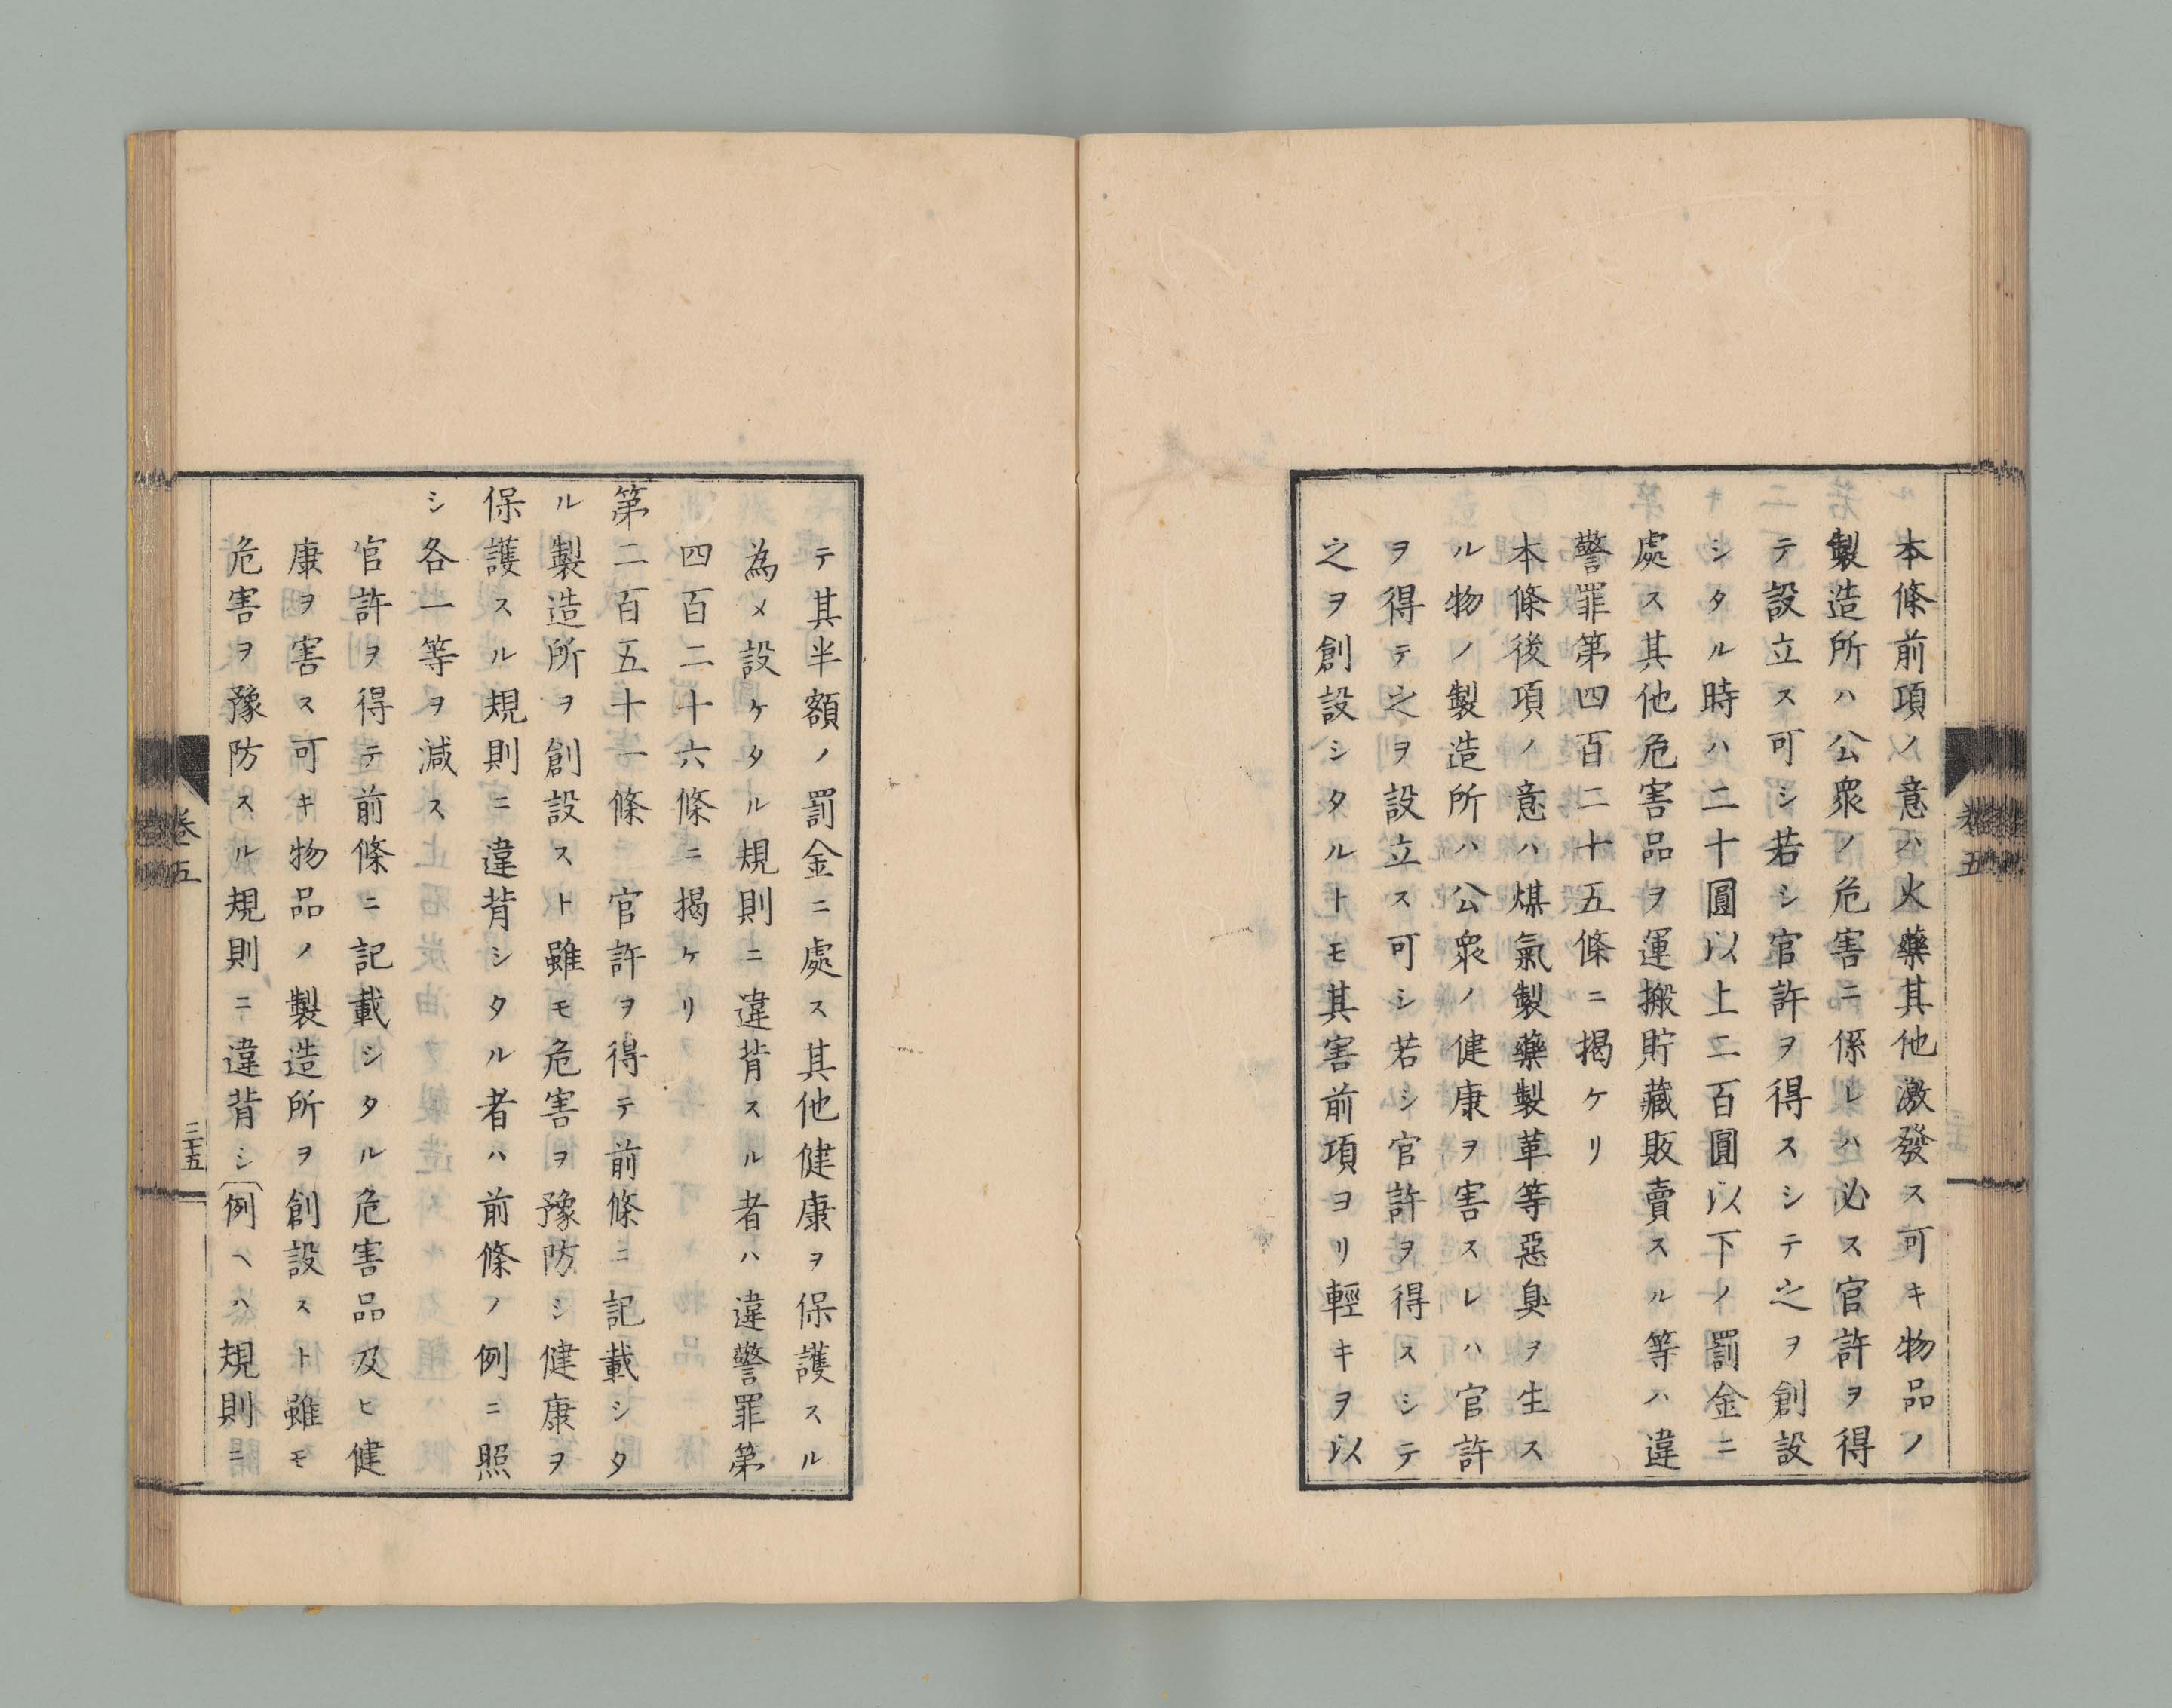 本條前項ノ意ハ火藥其他激發ス可キ物品ノ
製造所ハ公衆ノ危害ニ係レハ必ス官許ヲ得
テ設立ス可シ若シ官許ヲ得スシテ之ヲ創設
シタル時ハ二十圓以上二百圓以下ノ罰金ニ
處ス其他危害品ヲ運搬貯藏販賣スル等ハ違
警罪第四百二十五條ニ揭ケリ
本條後項ノ意ハ煤氣製藥製革等惡臭ヲ生ス
ル物ノ製造所ハ公衆ノ健康ヲ害スレハ官許
ヲ得テ之ヲ設立ス可シ若シ官許ヲ得スシテ
之ヲ創設シタルトモ其害前項ヨリ輕キヲ以
卷五
テ其半額ノ罰金ニ處ス其他健康ヲ保護スル
為メ設ケタル規則ニ違背スル者ハ違警罪第
四百二十六條ニ揭ケリ
第二百五十一條 官許ヲ得テ前條ニ記載シタ
ル製造所ヲ創設スト雖モ危害ヲ豫防シ健康ヲ
保護スル規則ニ違背シタル者ハ前條ノ例ニ照
シ各一等ヲ減ス
官許ヲ得テ前條ニ記載シタル危害品及ヒ健
康ヲ害ス可キ物品ノ製造所ヲ創設スト雖モ
危害ヲ豫防スル規則ニ違背シ〔例ヘハ規則ニ
卷五
二十五